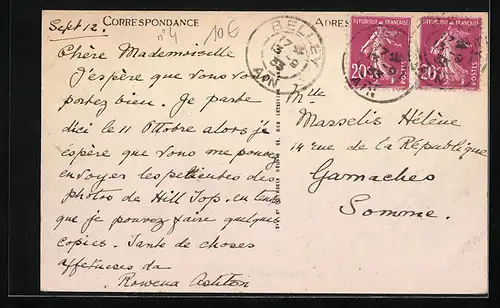 CORRESPONDANCE
ADRES
Sept 12.
n°4 10€
BELLEY
AIN
RÉPUBLIQUE FRANÇAISE
20c POSTES
RÉPUBLIQUE FRANÇAISE
20c POSTES
Chère Mademoiselle
J'espère que vous vous
portez bien. Je parte
d'ici le 11 Octobre alors je
espère que vous me pouvez
envoyer les petites des
photos de Hill Top. en
que je pouvez faire quelques
copies. Tante de choses
affetueses da
Rowena Ashton
Mlle
Marselis Hélène
14 rue de la République
Gamaches
Somme.